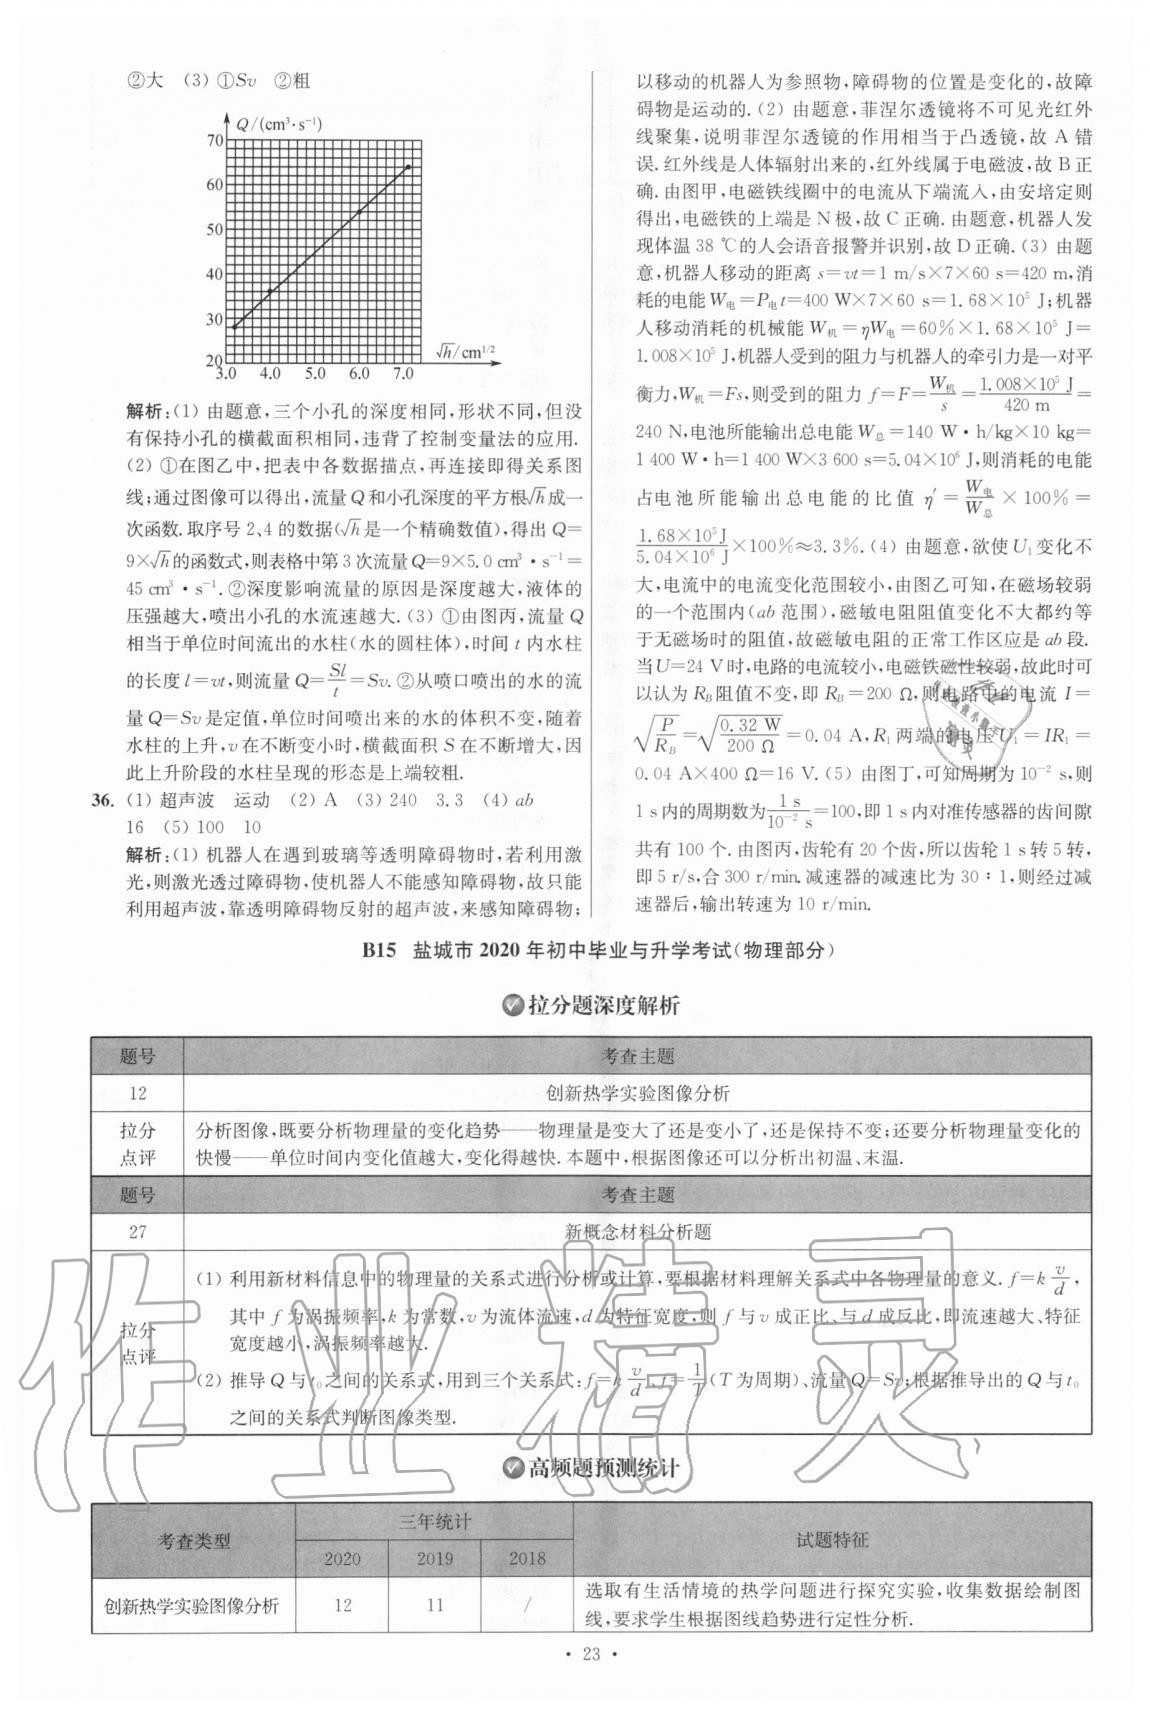 ②大 (3) ①Sv ②粗
Q/(cm³·s⁻¹)
70
60
50
40
30
20
3.0 4.0 5.0 6.0 7.0
√h/cm^{1/2}
解析:(1) 由题意,三个小孔的深度相同,形状不同,但没
有保持小孔的横截面积相同,违背了控制变量法的应用.
(2) ①在图乙中,把表中各数据描点,再连接即得关系图
线;通过图像可以得出,流量Q和小孔深度的平方根√h成一
次函数.取序号2、4的数据(√h是一个精确数值),得出Q=
9×√h的函数式,则表格中第3次流量Q=9×5.0 cm³·s⁻¹=
45 cm³·s⁻¹.②深度影响流量的原因是深度越大,液体的
压强越大,喷出小孔的水流速越大.(3) ①由图丙,流量Q
相当于单位时间流出的水柱(水的圆柱体),时间t内水柱
的长度l=vt,则流量Q=Sl/t=Sv.②从喷口喷出的水的流
量Q=Sv是定值,单位时间喷出来的水的体积不变,随着
水柱的上升,v在不断变小时,横截面积S在不断增大,因
此上升阶段的水柱呈现的形态是上端较粗.
36. (1) 超声波 运动 (2) A (3) 240 3.3 (4) ab
16 (5) 100 10
解析:(1) 机器人在遇到玻璃等透明障碍物时,若利用激
光,则激光透过障碍物,使机器人不能感知障碍物,故只能
利用超声波,靠透明障碍物反射的超声波,来感知障碍物;
以移动的机器人为参照物,障碍物的位置是变化的,故障
碍物是运动的.(2) 由题意,菲涅尔透镜将不可见光红外
线聚集,说明菲涅尔透镜的作用相当于凸透镜,故A错
误.红外线是人体辐射出来的,红外线属于电磁波,故B正
确.由图甲,电磁铁线圈中的电流从下端流入,由安培定则
得出,电磁铁的上端是N极,故C正确.由题意,机器人发
现体温38 ℃的人会语音报警并识别,故D正确.(3) 由题
意,机器人移动的距离s=vt=1 m/s×7×60 s=420 m,消
耗的电能W电=P电t=400 W×7×60 s=1.68×10⁵ J;机器
人移动消耗的机械能W机=ηW电=60%×1.68×10⁵ J=
1.008×10⁵ J,机器人受到的阻力与机器人的牵引力是一对平
衡力,W机=Fs,则受到的阻力f=F=W机/s=1.008×10⁵ J/420 m=
240 N,电池所能输出总电能W总=140 W·h/kg×10 kg=
1 400 W·h=1 400 W×3 600 s=5.04×10⁶ J,则消耗的电能
占电池所能输出总电能的比值η′=W电/W总×100%=
1.68×10⁵J/5.04×10⁶ J×100%≈3.3%.(4) 由题意,欲使U₁变化不
大,电流中的电流变化范围较小,由图乙可知,在磁场较弱
的一个范围内(ab范围),磁敏电阻阻值变化不大都约等
于无磁场时的阻值,故磁敏电阻的正常工作区应是ab段.
当U=24 V时,电路的电流较小,电磁铁磁性较弱,故此时可
以认为R_B阻值不变,即R_B=200 Ω,则电路中的电流I=
√(P/R_B)=√(0.32 W/200 Ω)=0.04 A,R₁两端的电压U₁=IR₁=
0.04 A×400 Ω=16 V.(5) 由图丁,可知周期为10⁻² s,则
1 s内的周期数为1 s/10⁻² s=100,即1 s内对准传感器的齿间隙
共有100个.由图丙,齿轮有20个齿,所以齿轮1 s转5转,
即5 r/s,合300 r/min.减速器的减速比为30∶1,则经过减
速器后,输出转速为10 r/min.
B15 盐城市2020年初中毕业与升学考试(物理部分)
拉分题深度解析
题号 考查主题
12 创新热学实验图像分析
拉分点评 分析图像,既要分析物理量的变化趋势——物理量是变大了还是变小了,还是保持不变;还要分析物理量变化的
快慢——单位时间内变化值越大,变化得越快.本题中,根据图像还可以分析出初温、末温.
题号 考查主题
27 新概念材料分析题
拉分点评 (1) 利用新材料信息中的物理量的关系式进行分析或计算,要根据材料理解关系式中各物理量的意义.f=k v/d,
其中f为涡振频率,k为常数,v为流体流速,d为特征宽度,则f与v成正比、与d成反比,即流速越大、特征
宽度越小,涡振频率越大.
(2) 推导Q与t₀之间的关系式,用到三个关系式:f=k v/d、f=1/T(T为周期)、流量Q=Sv;根据推导出的Q与t₀
之间的关系式判断图像类型.
高频题预测统计
考查类型 三年统计 试题特征
2020 2019 2018
创新热学实验图像分析 12 11 / 选取有生活情境的热学问题进行探究实验,收集数据绘制图
线,要求学生根据图线趋势进行定性分析.
· 23 ·
作业精灵